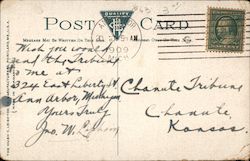 POST CARD
QUALITY
MESSAGE MAY BE WRITTEN ON THIS
1909
Wish you would
send the Tribune
to me at
324 East Liberty St
Ann Arbor, Michigan
Yours Truly
Jno. W.
Chanute Tribune
Chanute,
Kansas